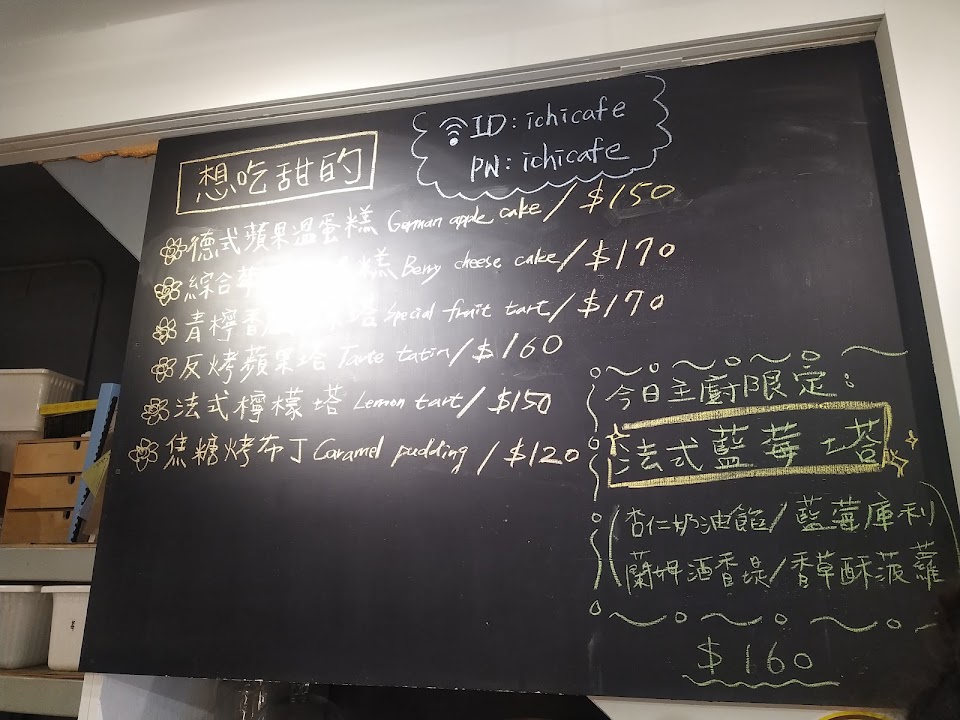 ID: ichicafe
PW: ichicafe
想吃甜的
德式蘋果溫蛋糕 German apple cake/$150
綜合莓 糕 Berry cheese cake/$170
青檸香 塔 Special fruit tart/$170
反烤蘋果塔 Tarte tatin/$160
法式檸檬塔 Lemon tart/$150
焦糖烤布丁 Caramel pudding/$120
今日主廚限定:
法式藍莓塔
(杏仁奶油餡/藍莓庫利
蘭姆酒香堤/香草酥菠蘿)
$160